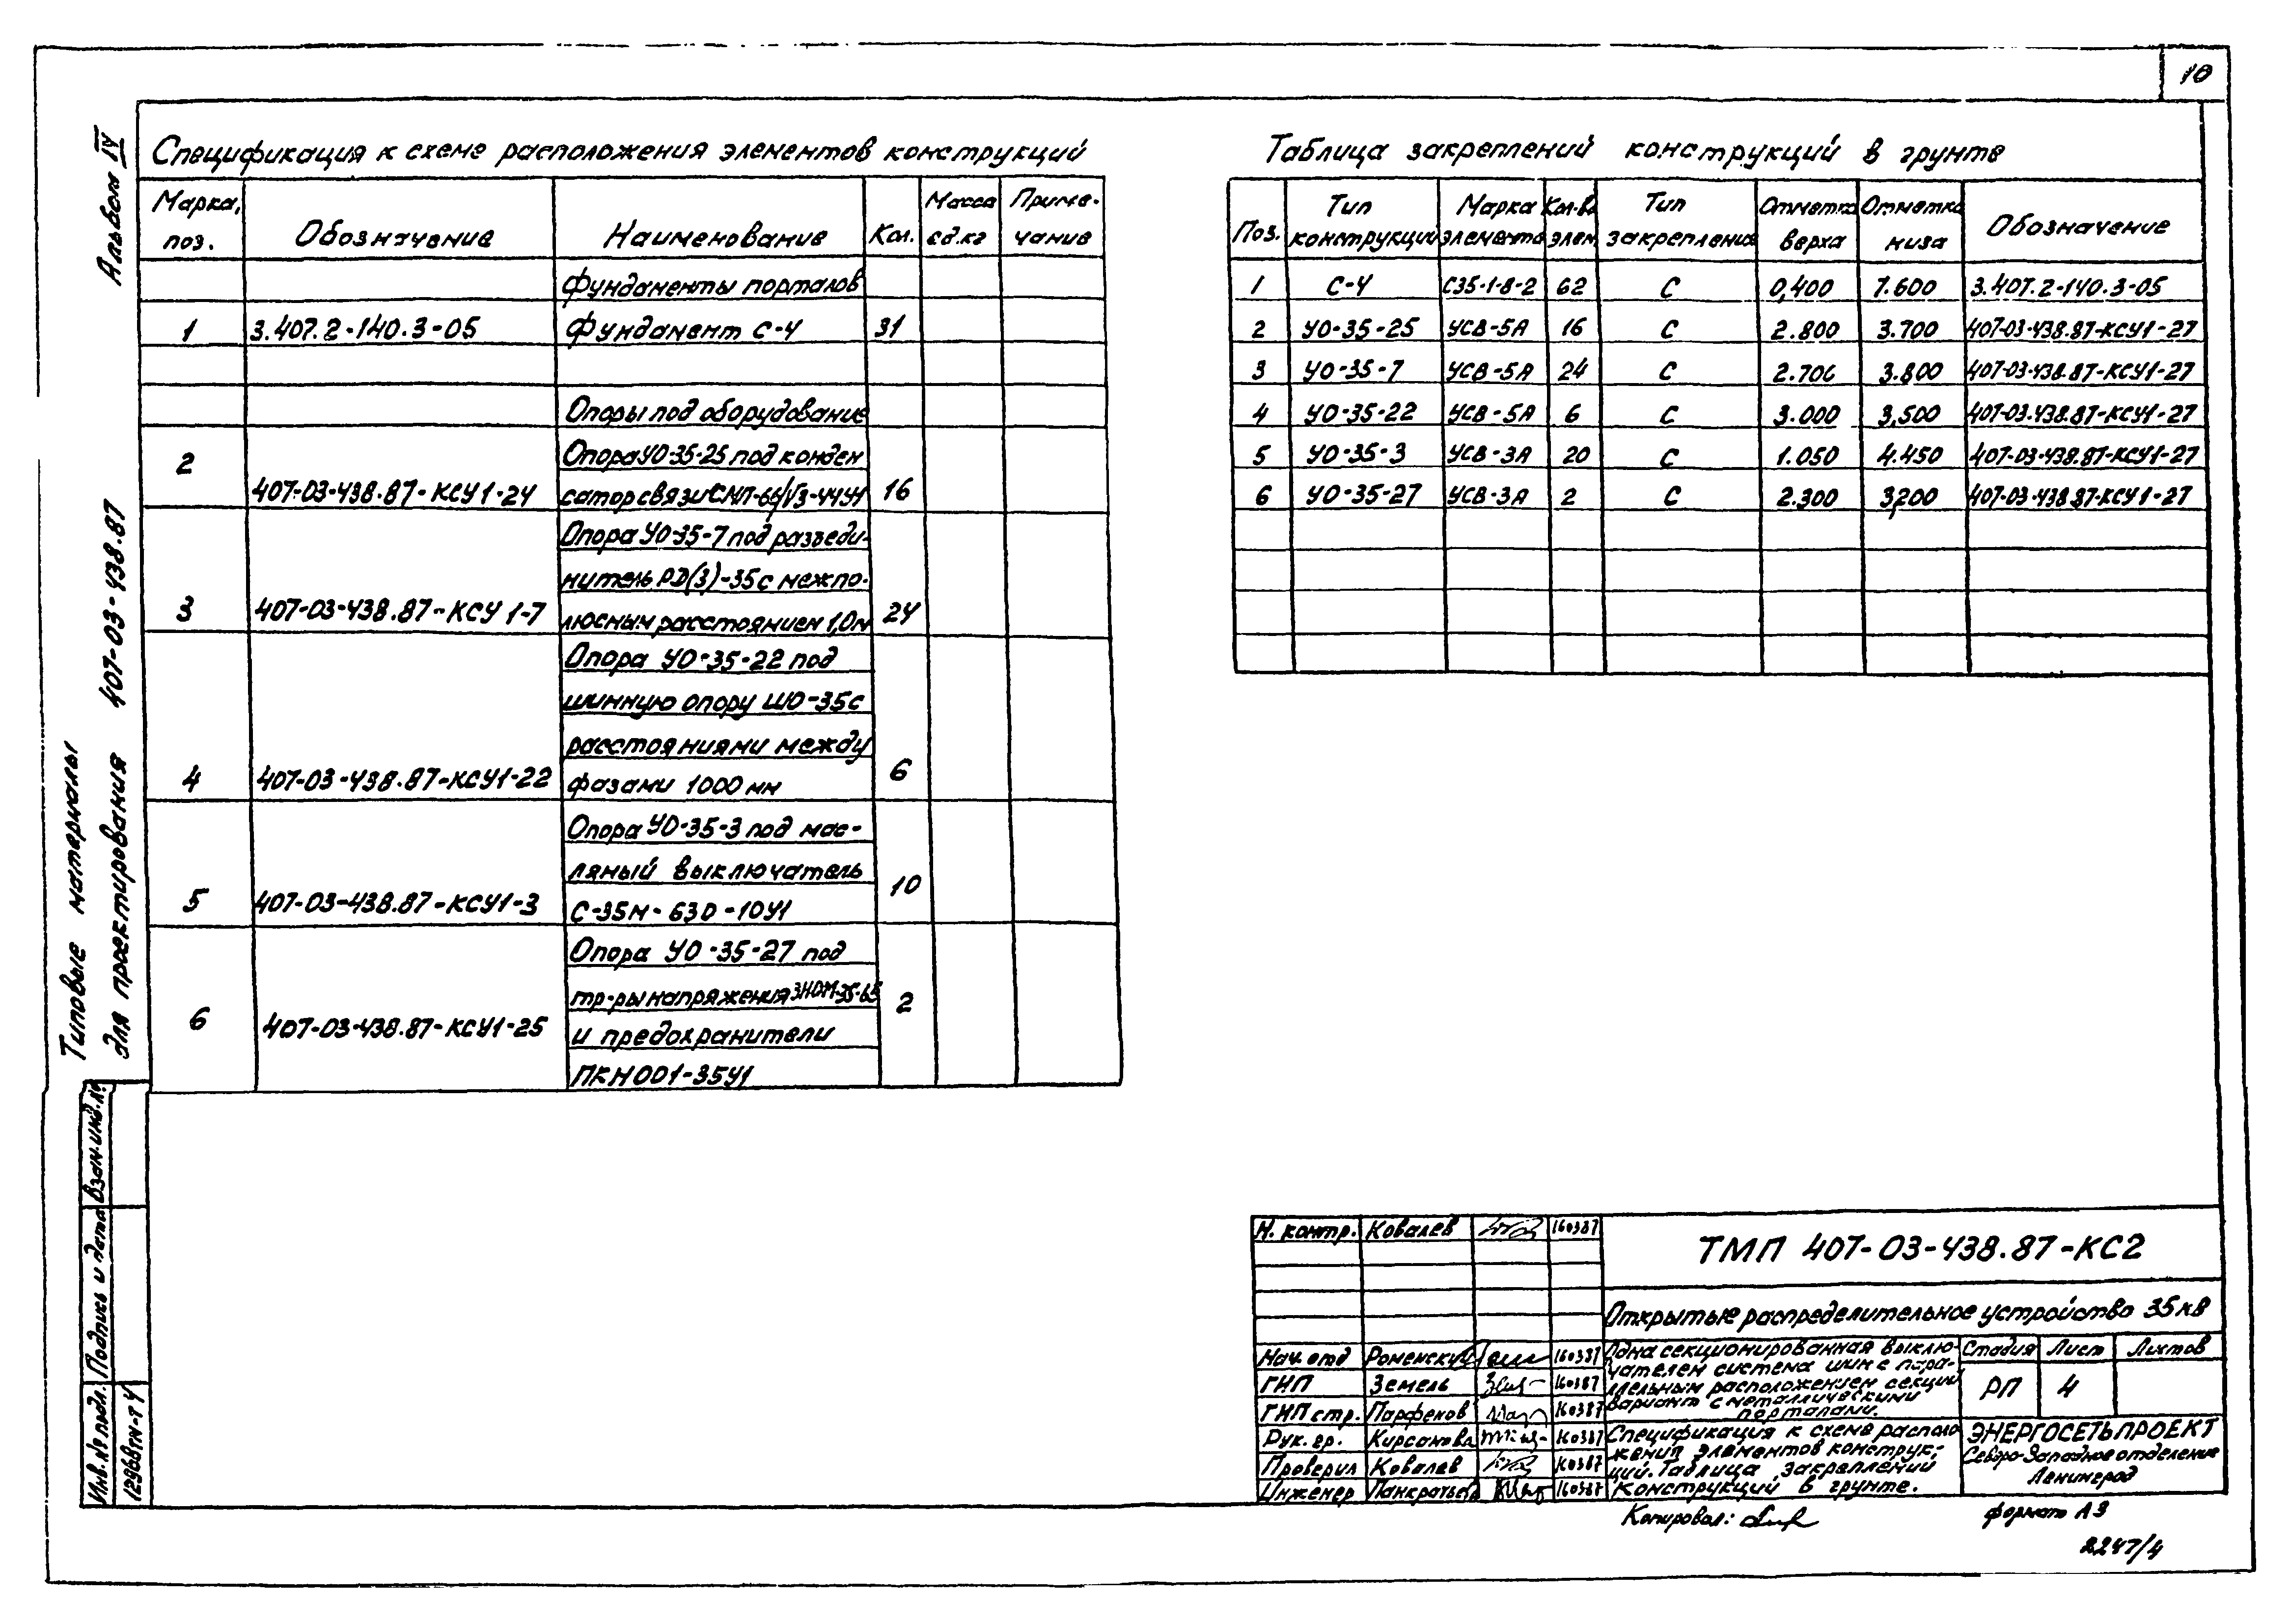 10
Альбом IV
Типовые материалы
для проектирования 407-03-438.87
Спецификация к схеме расположения элементов конструкций
Марка, поз. Обозначение Наименование Кол. Масса ед.кг Приме-чание
Фундаменты порталов
1 3.407.2-140.3-05 Фундамент С-4 31
Опоры под оборудование
2 407-03-438.87-КСУ1-24 Опора УО-35-25 под конден
сатор связи СМП-66/√3-4,4У1 16
Опора УО-35-7 под разъеди-
нитель РД(З)-35 с межпо-
3 407-03-438.87-КСУ1-7 люсным расстоянием 1,0м 24
Опора УО-35-22 под
шинную опору ШО-35 с
расстояниями между
4 407-03-438.87-КСУ1-22 фазами 1000 мм 6
Опора УО-35-3 под мас-
ляный выключатель 10
5 407-03-438.87-КСУ1-3 С-35М-630-10У1
Опора УО-35-27 под
тр-ры напряжения ЗНОМ-35-65 2
6 407-03-438.87-КСУ1-25 и предохранители
ПКН001-35У1
Таблица закреплений конструкций в грунте
Поз. Тип конструкции Марка элемента Кол-во элем. Тип закрепления Отметка верха Отметка низа Обозначение
1 С-4 С35-1-8-2 62 С 0,400 7.600 3.407.2-140.3-05
2 УО-35-25 УСВ-5А 16 С 2.800 3.700 407-03-438.87-КСУ1-27
3 УО-35-7 УСВ-5А 24 С 2.700 3.800 407-03-438.87-КСУ1-27
4 УО-35-22 УСВ-5А 6 С 3.000 3,500 407-03.438.87-КСУ1-27
5 УО-35-3 УСВ-3А 20 С 1.050 4.450 407-03-438.87-КСУ1-27
6 УО-35-27 УСВ-3А 2 С 2.300 3,200 407-03-438.87-КСУ1-27
Взам.инв.№
Подпись и дата
Инв.№ подл.
12966тм-т4
Н. контр. Ковалев 160387
ТМП 407-03-438.87-КС2
Открытые распределительное устройство 35кВ
Нач. отд Роменский 160387
ГИП Земель 160387
ГИП стр. Парфенов 160387
Рук. гр. Кирсанова 160387
Проверил Ковалев 160387
Инженер Панкратьева 160387
Одна секционированная выклю-
чателем система шин с пара-
ллельным расположением секций
Вариант с металлическими
порталами.
Стадия Лист Листов
РП 4
Спецификация к схеме располо
жения элементов конструк-
ций. Таблица закреплений
конструкций в грунте.
ЭНЕРГОСЕТЬПРОЕКТ
Северо-Западное отделение
Ленинград
Копировал:
формат А3
2247/4